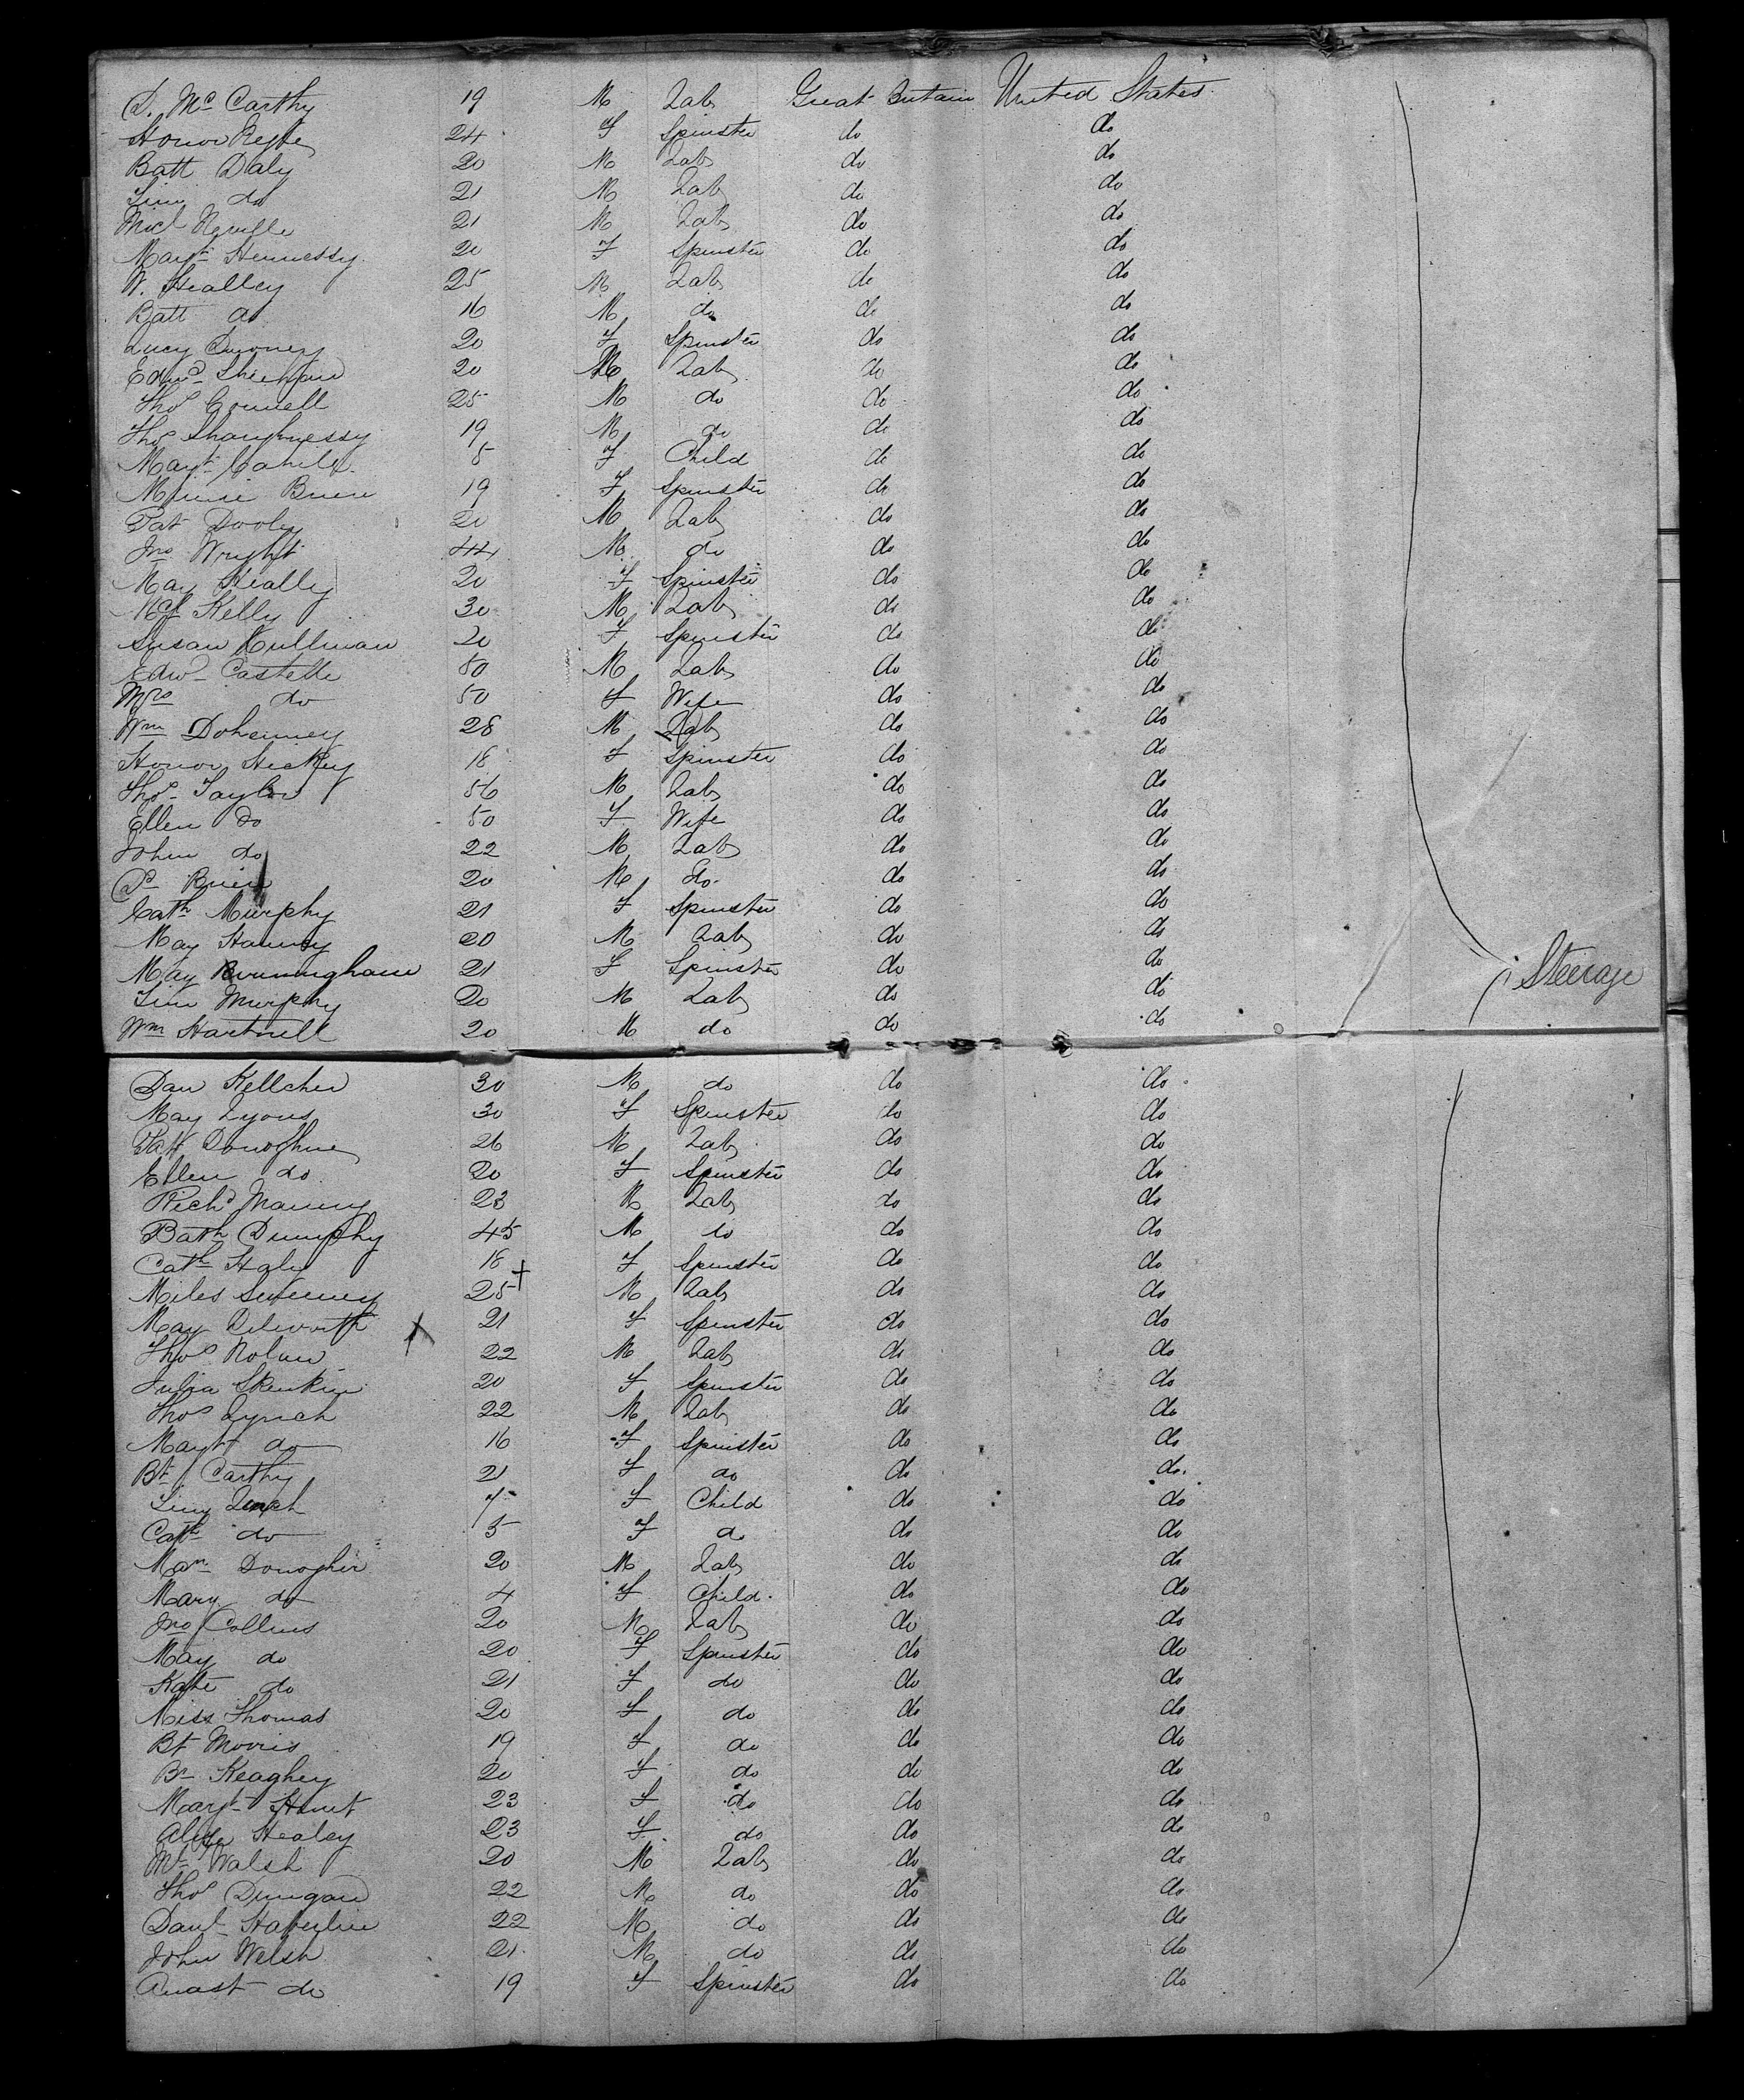 D. McCarthy 19 M Lab Great Britain United States
Honor 24 F Spinster do do
Batt Daly 20 M Lab do do
Tim do 21 M Lab do do
Micl Neville 21 M Lab do do
Margt Hennessy 20 F Spinster do do
W. Healley 25 M Lab do do
Batt do 16 M do do do
Lucy Downey 20 F Spinster do do
Edwd Sheehan 20 M Lab do do
Thos Connell 25 M do do do
Thos Shaughnessy 19 M do do do
Margt Cahill 5 F Child do do
Minnie Brien 19 F Spinster do do
Pat Dooley 20 M Lab do do
Jno Wright 44 M do do do
May Heally 20 F Spinster do do
Kelly 30 M Lab do do
Susan Cullinan 20 F Spinster do do
Edwd Castelle 50 M Lab do do
Mrs do 50 F Wife do do
Wm Dohenney 28 M Lab do do
Honor Hickey 18 F Spinster do do
Thos Taylor 56 M Lab do do
Ellen do 50 F Wife do do
John do 22 M Lab do do
Brien 20 M do do do
Cath Murphy 21 F Spinster do do
May 20 M Lab do do
May Birmingham 21 F Spinster do do
Steerage
Tim Murphy 20 M Lab do do
Wm Hartnell 20 M do do do
Dan Kellcher 30 M do do do
May Lyons 30 F Spinster do do
Patt Donoghue 26 M Lab do do
Ellen do 20 F Spinster do do
Richd Manny 23 M Lab do do
Bath Dumphy 45 M do do do
Cath Haly 18 F Spinster do do
Miles Sweeney 25 + M Lab do do
May Dilworth X 21 F Spinster do do
Thos Nolan 22 M Lab do do
Julia 20 F Spinster do do
Thos Lynch 22 M Lab do do
Margt do 16 F Spinster do do
Bt Carthy 21 F do do do
7 F Child do do
Cath do 5 F do do do
Donogher 20 M Lab do do
Mary do 4 F Child do do
Jno Collins 20 M Lab do do
May do 20 F Spinster do do
Kate do 21 F do do do
Miss Thomas 20 F do do do
Bt Morris 19 F do do do
Br Keaghey 20 F do do do
Margt Hunt 23 F do do do
Healey 23 F do do do
Mt Walsh 20 M Lab do do
Thos Dungan 22 M do do do
Danl 22 M do do do
John Welsh 21 M do do do
Anast do 19 F Spinster do do